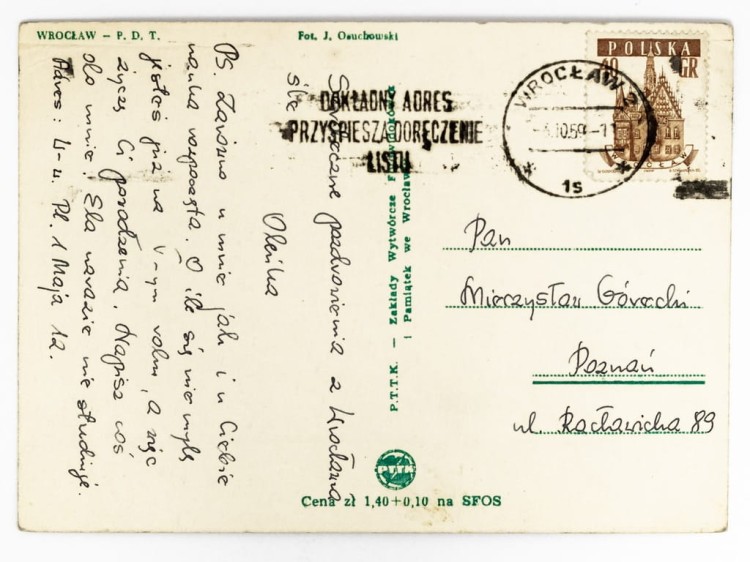 WROCŁAW – P. D. T.
Fot. J. Osuchowski
POLSKA
40 GR
WROCŁAW
WROCŁAW 2
10.59
1s
DOKŁADNY ADRES
PRZYSPIESZA DORĘCZENIE
LISTU
Serdeczne pozdrowienia z Wrocławia
śle
Oleńka
PS. Zarówno u mnie jak i u Ciebie
nauka rozpoczęta. O ile się nie mylę
jesteś już na V-ym roku, a więc
życzę Ci powodzenia. Napisz coś
do mnie! Ela narazie nie studiuje.
Adres: Pl. 1 Maja 12.
P.T.T.K. — Zakłady Wytwórcze
i Pamiątek we Wrocławiu
Pan
Mieczysław Górecki
Poznań
ul. Racławicka 89
PTTK
Cena zł 1,40+0,10 na SFOS